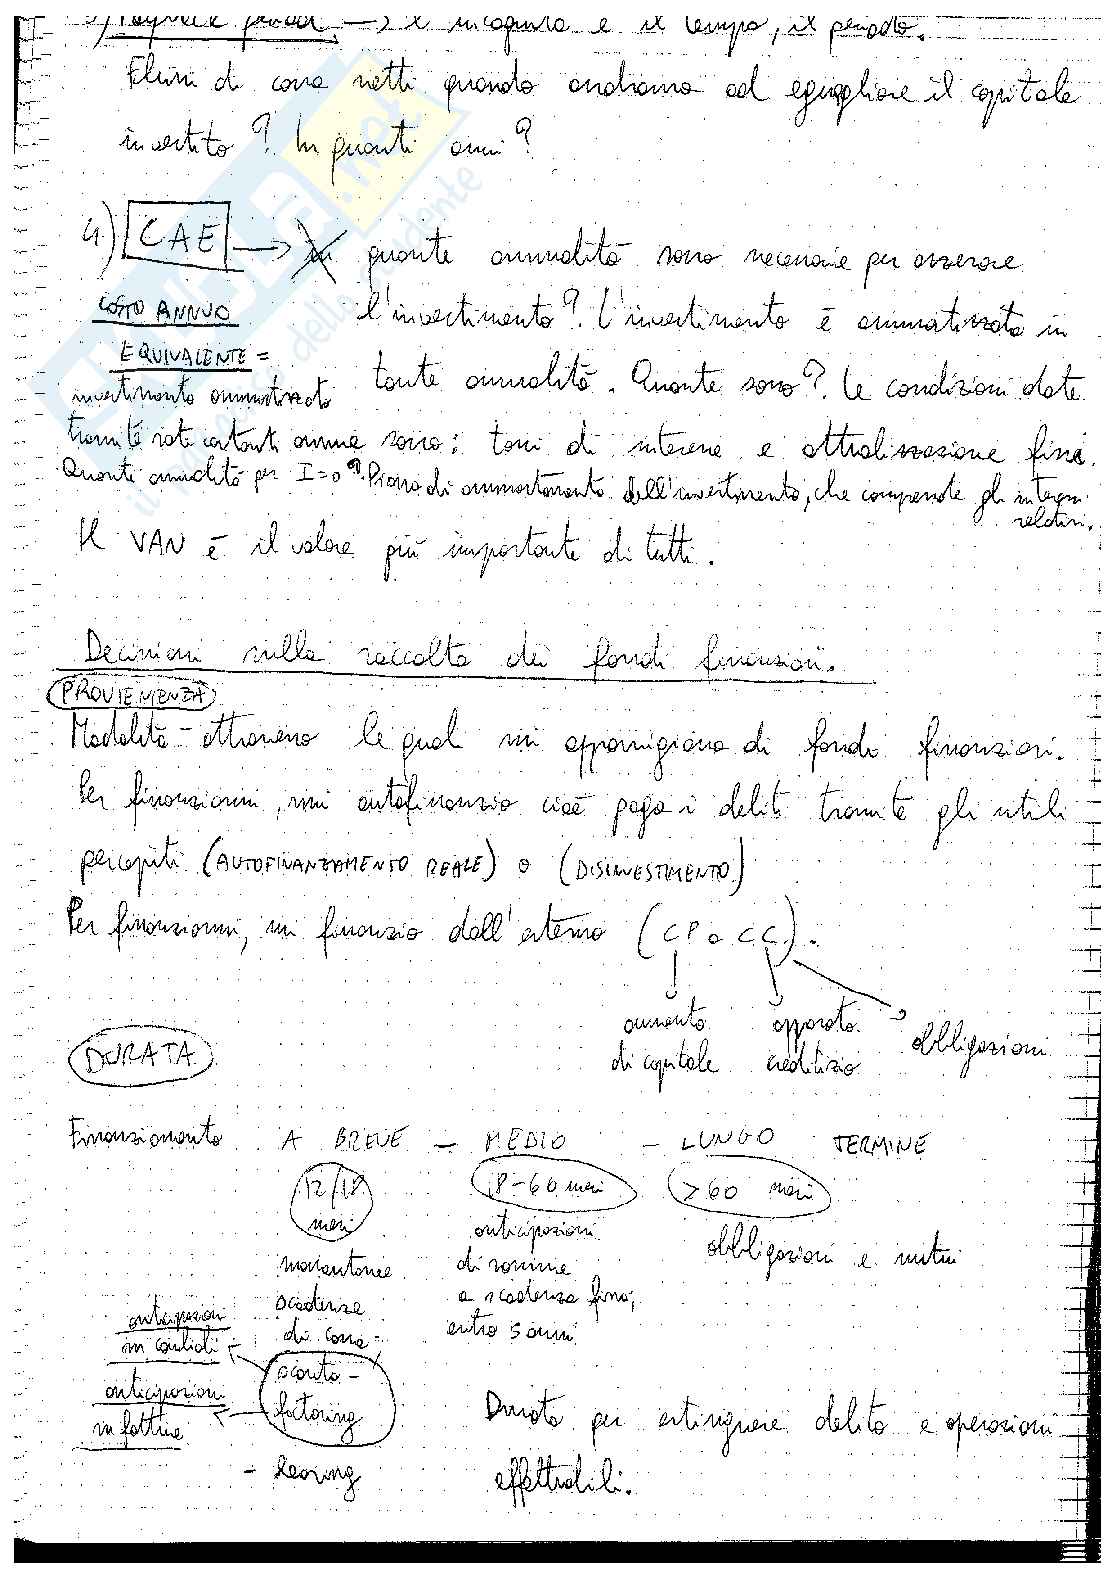 3) Payback period → L'incognita è il tempo, il periodo.
Flussi di cassa netti quando andranno ad eguagliare il capitale
investito? In quanti anni?
4) CAE → quante annualità sono necessarie per azzerare
COSTO ANNUO l'investimento? L'investimento è ammortizzato in
EQUIVALENTE = tante annualità. Quante sono? Le condizioni date
investimento ammortizzato
tramite rate costanti annue sono: tassi di interesse e attualizzazione fissi.
Quante annualità per I=0? Piano di ammortamento dell'investimento, che comprende gli interessi
relativi.
Il VAN è il valore più importante di tutti.
Decisioni sulla raccolta dei fondi finanziari.
PROVIENIENZA
Modalità attraverso le quali mi approvvigiono di fondi finanziari.
Per finanziarmi, mi autofinanzio cioè pago i debiti tramite gli utili
percepiti (AUTOFINANZIAMENTO REALE) o (DISINVESTIMENTO)
Per finanziarmi, mi finanzio dall'esterno (CP o CC).
aumento apporto obbligazioni
di capitale creditizio
DURATA
Finanziamento A BREVE - MEDIO - LUNGO TERMINE
12/18 18-60 mesi >60 mesi
mesi anticipazioni obbligazioni e mutui
di somme
scadenze a scadenza fissa,
anticipazioni di cassa, entro 5 anni
sconto -
anticipazioni factoring Durata per estinguere debito e operazioni
in fatture
- Leasing effettuabili.